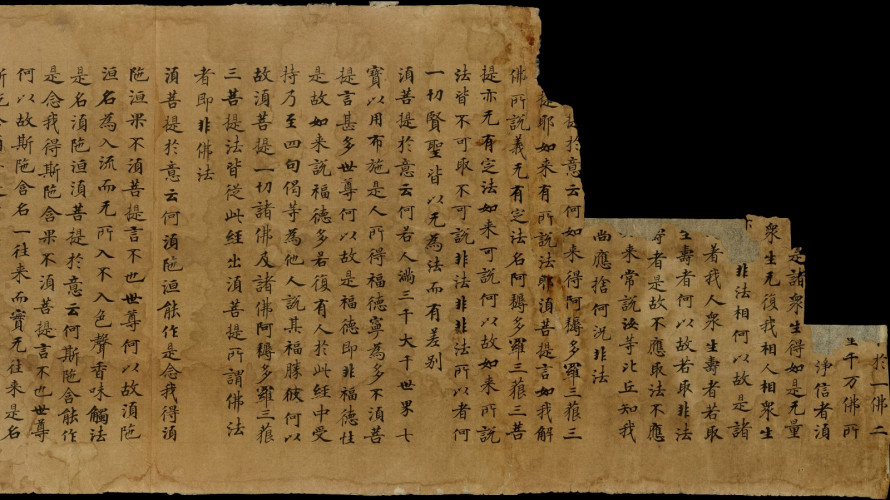 於一佛二
千万佛所
淨信者須
是諸衆生得如是无量
衆生无復我相人相衆生
非法相何以故是諸
着我人衆生壽者若取
生壽者何以故若取非法
者是故不應取法不應
来常說汝等比丘知我
尚應捨何況非法
提於意云何如来得阿耨多羅三藐三
提耶如来有所說法耶須菩提言如我解
佛所說義无有定法名阿耨多羅三藐三菩
提亦无有定法如来可說何以故如来所說
法皆不可取不可說非法非非法所以者何
一切賢聖皆以无為法而有差別
須菩提於意云何若人滿三千大千世界七
寶以用布施是人所得福德寧為多不須菩
提言甚多世尊何以故是福德即非福德性
是故如来說福德多若復有人於此經中受
持乃至四句偈等為他人說其福勝彼何以
故須菩提一切諸佛及諸佛阿耨多羅三藐
三菩提法皆從此經出須菩提所謂佛法
者即非佛法
須菩提於意云何須陁洹能作是念我得須
陁洹果不須菩提言不也世尊何以故須陁
洹名為入流而无所入不入色聲香味觸法
是名須陁洹須菩提於意云何斯陁含能作
是念我得斯陁含果不須菩提言不也世尊
何以故斯陁含名一往来而實无往来是名